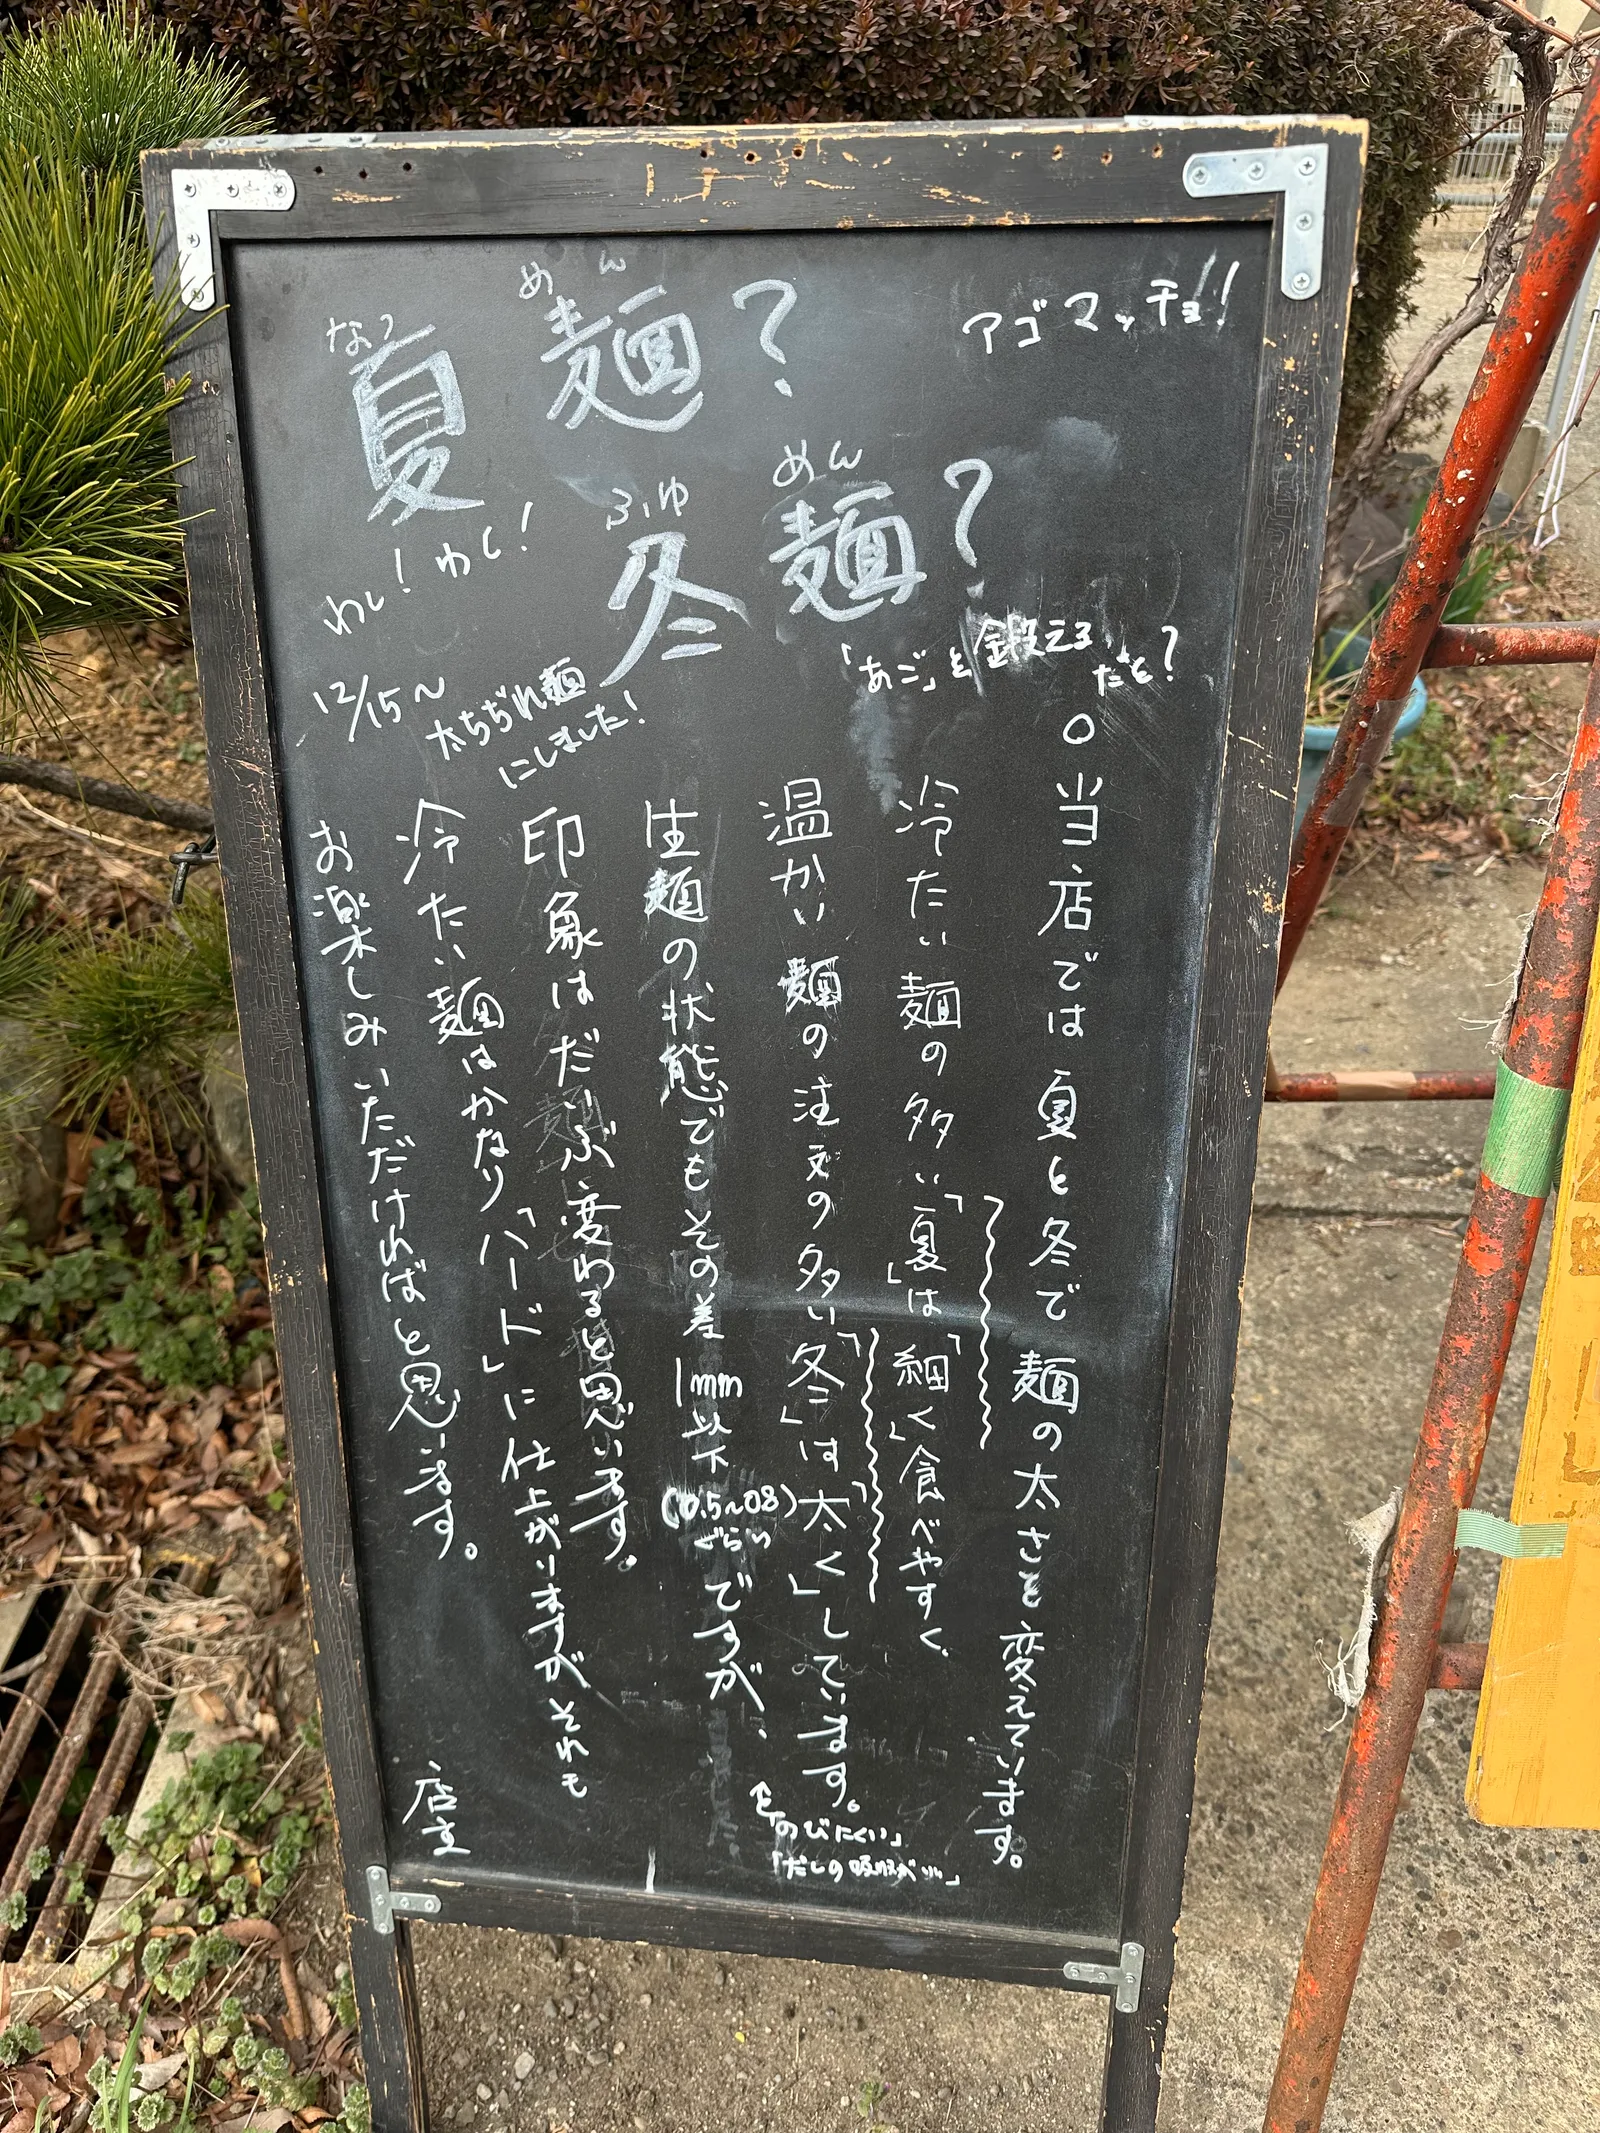 なつ めん
夏麺?
アゴマッチョ!!
ふゆ めん
冬麺?
わし! わし!
12/15〜
太ちぢれ麺
にしました!
「あご」を鍛える
だと?
○当店では夏と冬で麺の太さを変えています。
冷たい麺の多い「夏」は「細く」食べやすく、
温かい麺の注文の多い「冬」は「太く」しています。
「のびにくい」
「だしの吸収がいい」
生麺の状態でもその差1mm以下(0.5〜0.8ぐらい)ですが、
印象はだいぶ変わると思います。
冷たい麺はかなり「ハード」に仕上がりますがそれも
お楽しみいただければと思います。
店主